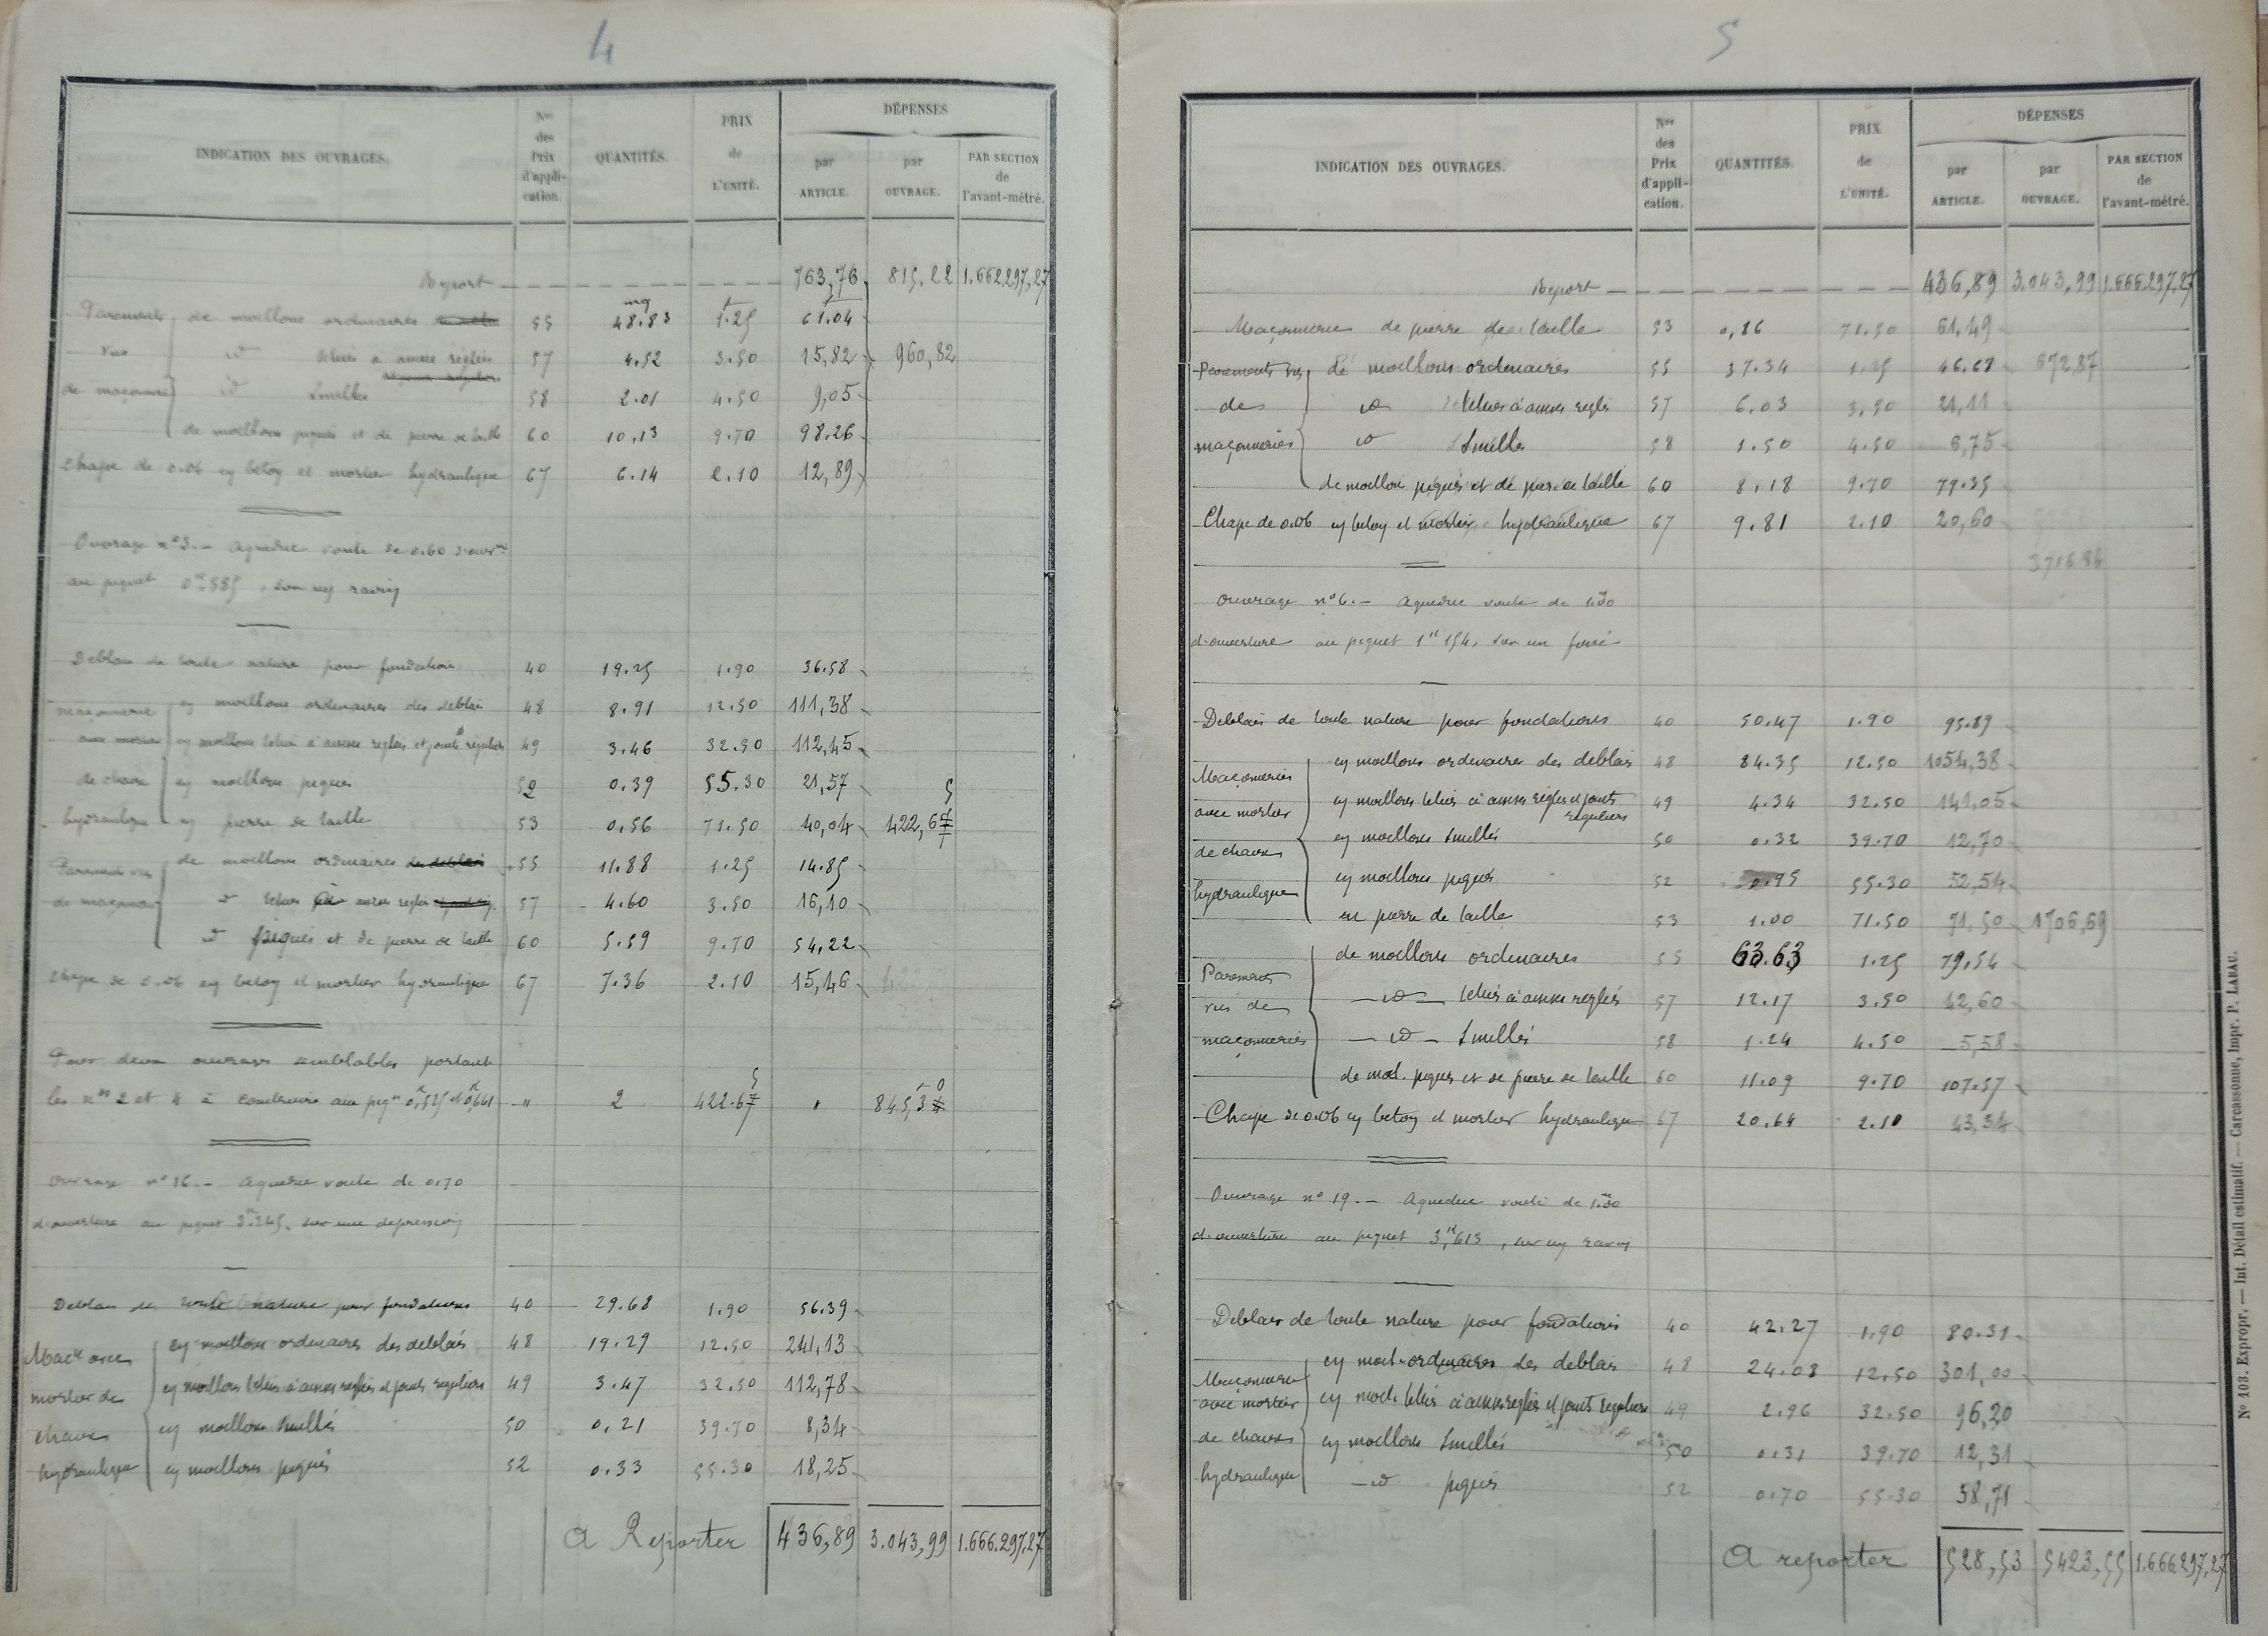 4
INDICATION DES OUVRAGES.
Nos des Prix d'appli-cation.
QUANTITÉS.
PRIX de L'UNITÉ.
DÉPENSES
par ARTICLE.
par OUVRAGE.
PAR SECTION de l'avant-métré.
Report 763,76 815,22 1.662.297,27
Parements de moellons ordinaires 55 48.83 1.25 61.04
vus id têtués à arêtes réglées 57 4.52 3.50 15,82 960,82
de maçonnerie id smillés 58 2.01 4.50 9,05
de moellons piqués et de pierre de taille 60 10,13 9.70 98.26
Chape de 0.06 en béton et mortier hydraulique 67 6.14 2.10 12,89
Ouvrage n°3.- Aqueduc voûté de 0.60 d'ouvre
au piquet 0K.585, sur un ravin
Déblais de toute nature pour fondation 40 19.25 1.90 36.58
maçonnerie en moellons ordinaires des déblais 48 8.91 12.50 111,38
avec mortier en moellons têtués à arêtes réglées et joints réguliers 49 3.46 32.50 112,45
de chaux en moellons piqués 52 0.39 55.30 21,57
hydraulique en pierre de taille 53 0.56 71.50 40,04 422,65
Parements vus de moellons ordinaires des déblais 55 11.88 1.25 14.85
de maçonnerie id têtués à arêtes réglées 57 4.60 3.50 16,10
id piqués et de pierre de taille 60 5.59 9.70 54,22
Chape de 0.06 en béton et mortier hydraulique 67 7.36 2.10 15,46
Pour deux ouvrages semblables portant
les nos 2 et 4 à construire aux pqts 0K,525 et 0K,641 " 2 422.65 " 845,30
Ouvrage n° 16.- Aqueduc voûté de 0.70
d'ouverture au piquet 3K.245, sur une dépression
Déblais de toute nature pour fondations 40 29.68 1.90 56.39
Macie avec en moellons ordinaires des déblais 48 19.29 12.50 241,13
mortier de en moellons têtués à arêtes réglées et joints réguliers 49 3.47 32.50 112,78
chaux en moellons smillés 50 0.21 39.70 8,34
hydraulique en moellons piqués 52 0.33 55.30 18,25
A Reporter 436,89 3.043,99 1.666.297,27
5
INDICATION DES OUVRAGES.
Nos des Prix d'appli-cation.
QUANTITÉS.
PRIX de L'UNITÉ.
DÉPENSES
par ARTICLE.
par OUVRAGE.
PAR SECTION de l'avant-métré.
Report 436,89 3.043,99 1.666.297,27
Maçonnerie de pierre de taille 53 0,86 71.50 61,49
Parements vus de moellons ordinaires 55 37.34 1.25 46.68 672,87
de id têtués à arêtes réglés 57 6.03 3,50 21,11
maçonneries id smillés 58 1.50 4.50 6,75
de moellon piqués et de pierre de taille 60 8.18 9.70 79.35
Chape de 0.06 en béton et mortier hydraulique 67 9.81 2.10 20,60
3716.86
Ouvrage n° 6.- Aqueduc voûté de 1.m00
d'ouverture au piquet 1K154, sur un fossé
Déblais de toute nature pour fondations 40 50.47 1.90 95.89
Maçonneries en moellons ordinaires des déblais 48 84.35 12.50 1054,38
avec mortier en moellons têtués à arêtes réglés et joints réguliers 49 4.34 32.50 141,05
de chaux en moellons smillés 50 0.32 39.70 12,70
hydraulique en moellons piqués 52 0.95 55.30 52,54
en pierre de taille 53 1.00 71.50 71,50 1706,69
Parements de moellons ordinaires 55 63.63 1.25 79.54
vus de id têtués à arêtes réglés 57 12.17 3.50 42,60
maçonneries id smillés 58 1.24 4.50 5,58
de moel. piqués et de pierre de taille 60 11.09 9.70 107.57
Chape de 0.06 en béton et mortier hydraulique 67 20.64 2.10 43,34
Ouvrage n° 19.- Aqueduc voûté de 1.m00
d'ouverture au piquet 3K,613, sur un ravin
Déblais de toute nature pour fondations 40 42.27 1.90 80.31
Maçonnerie en moel. ordinaires des déblais 48 24.08 12.50 301,00
avec mortier en moel. têtués à arêtes réglés et joints réguliers 49 2.96 32.50 96,20
de chaux en moellons smillés 50 0.31 39.70 12,31
hydraulique id piqués 52 0.70 55.30 38,71
A reporter 528,53 5423,55 1.666.297,27
N° 103. Expropr. — Int. Détail estimatif. — Carcassonne, Impr. P. LABAU.